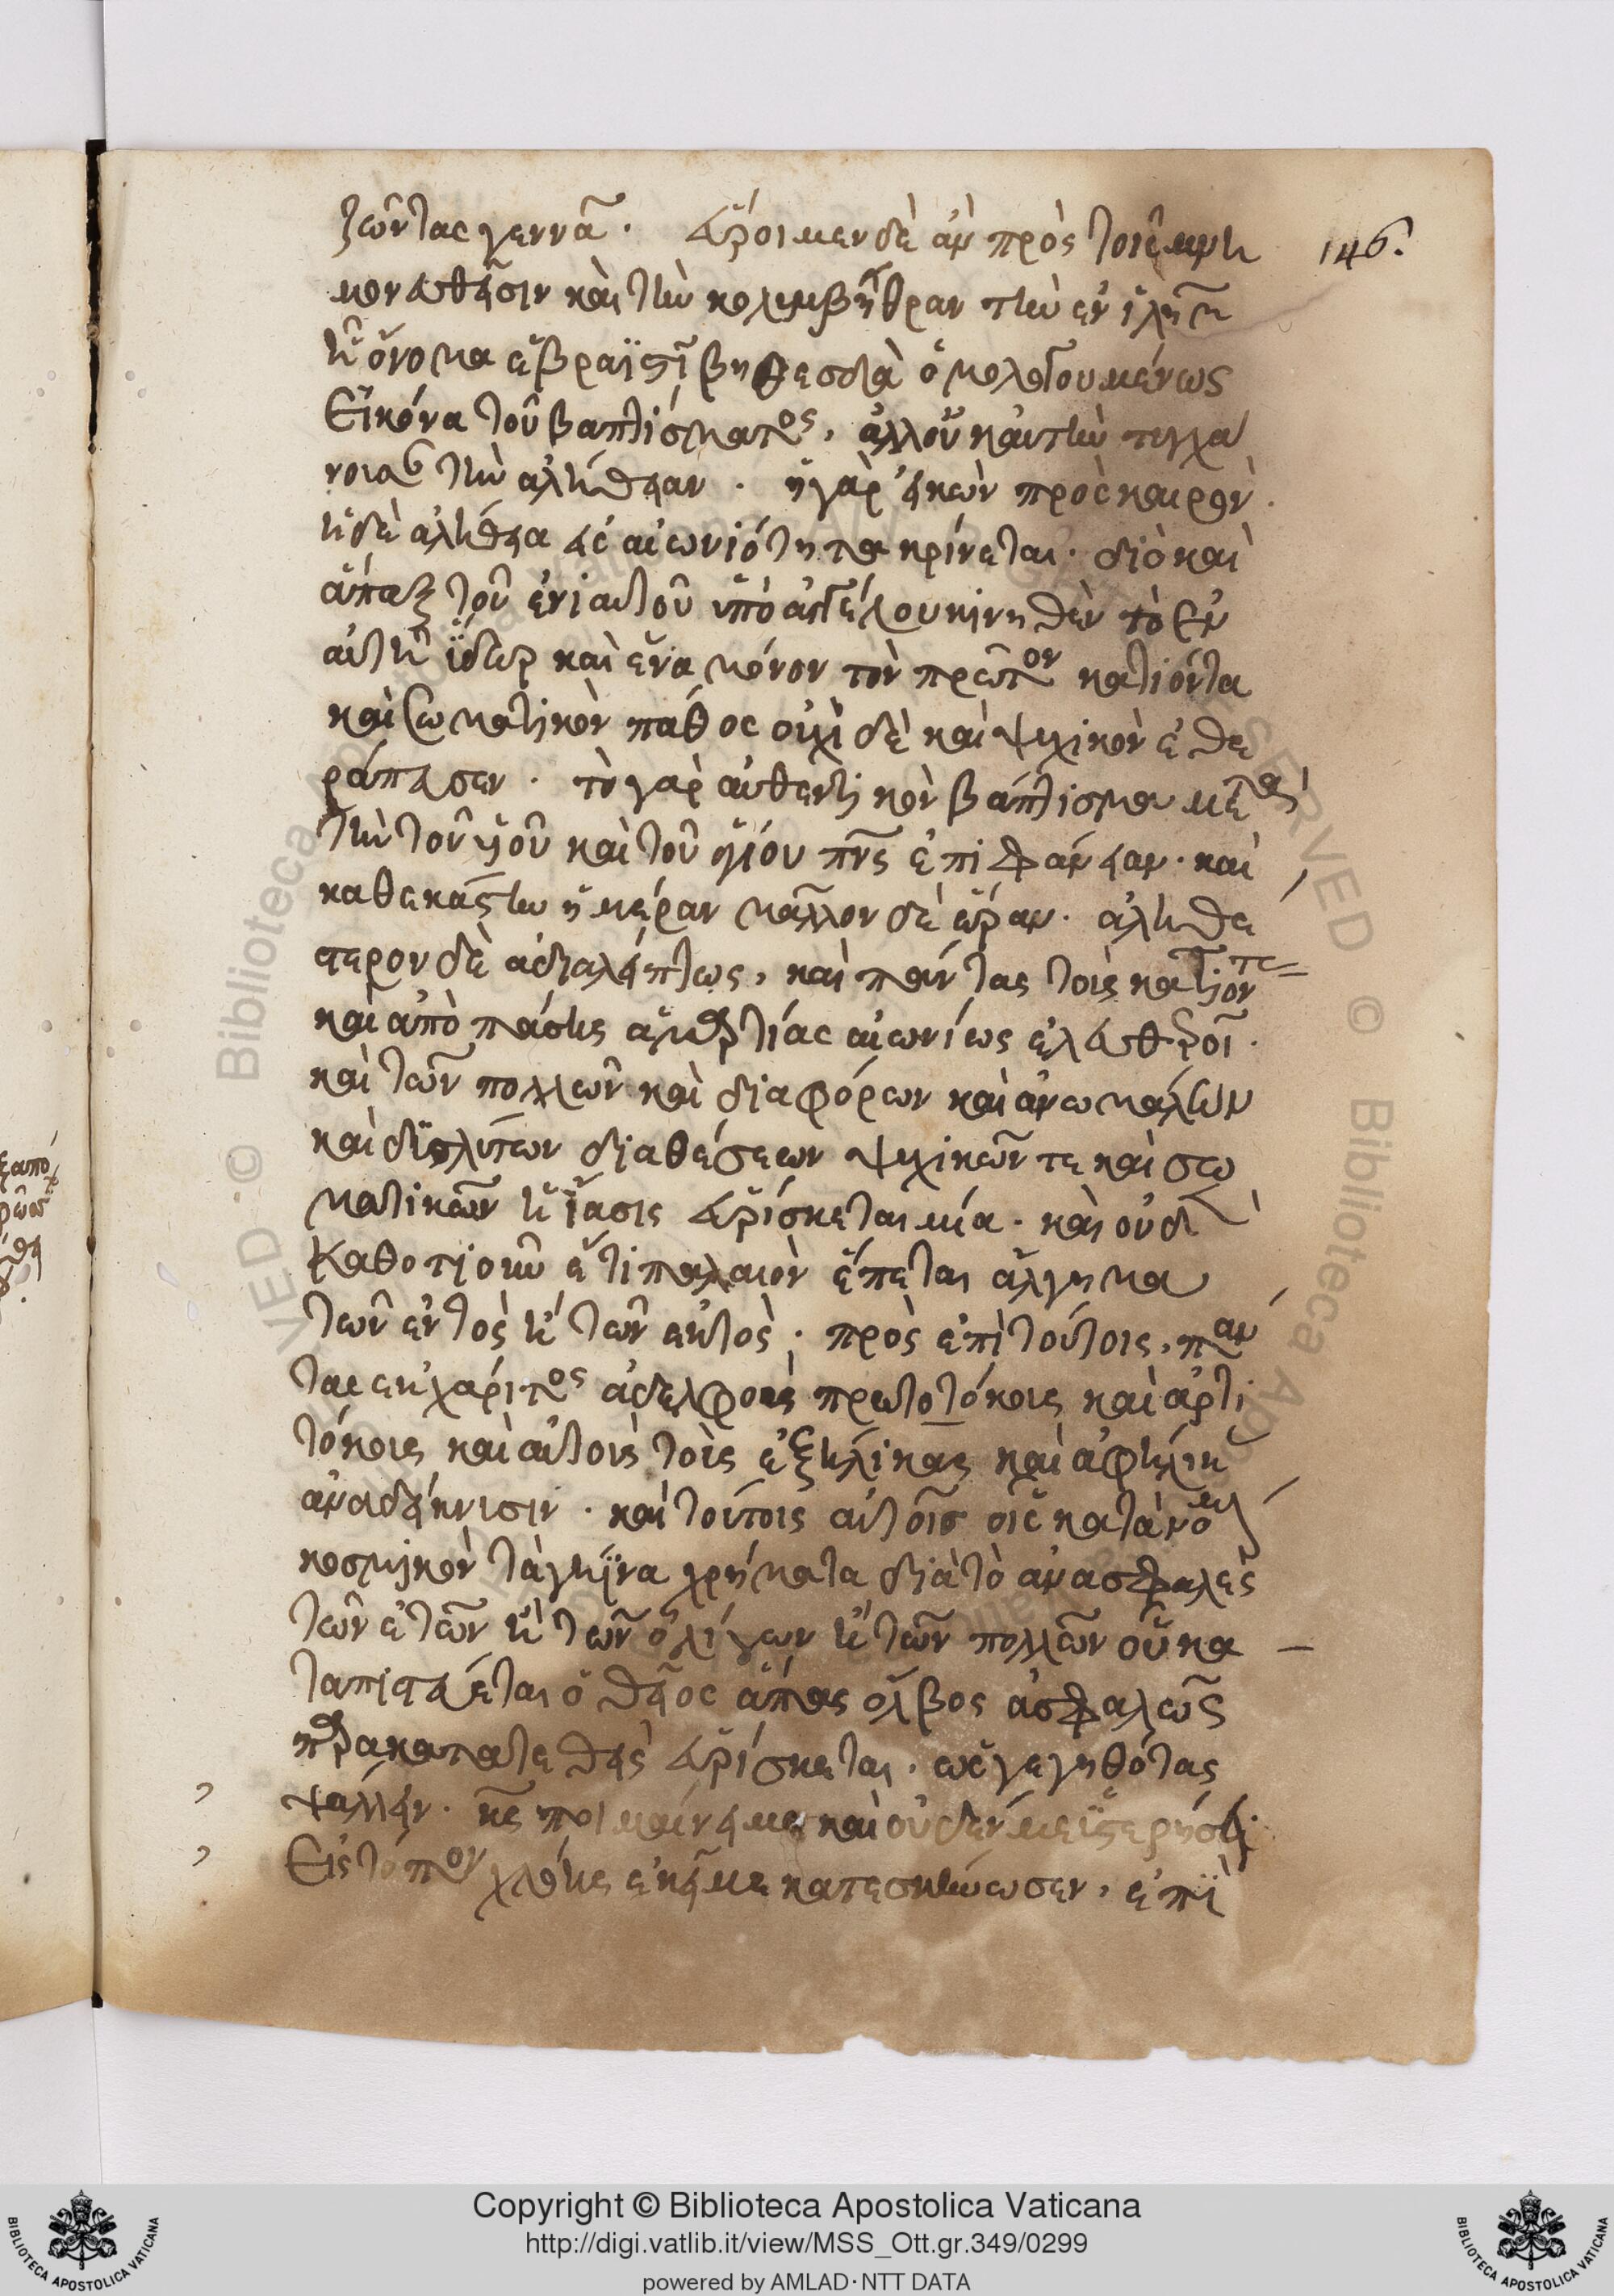 ζῶντας γεννᾶ. εὕροιμεν δὲ ἂν πρὸς τοῖς μνη
μονευθεῖσιν καὶ τὴν κολυμβήθραν τὴν ἐν ἱλὴμ
ἧ ὄνομα ἑβραϊστὶ βηθεσδὰ ὁμολογουμένως
Εἰκόνα τοῦ βαπτίσματος, ἀλλ' οὐκ αὐτὴν τυγχά
νουσαν τὴν ἀλήθειαν. ἡ γὰρ εἰκὼν πρὸς καιρὸν.
ἡ δὲ ἀλήθεια εἰς αἰωνιότητα κρίνεται. διὸ καὶ
ἅπαξ τοῦ ἐνιαυτοῦ ὑπὸ ἀγγέλου κινηθὲν τὸ ἐν
αὐτῆ ὕδωρ καὶ ἕνα μόνον τὸν πρῶτον κατιόντα
καὶ σωματικὸν πάθος οὐχὶ δὲ καὶ ψυχικὸν ἐθε
ράπευσεν. τὸ γὰρ αὐθεντικὸν βάπτισμα μετὰ
τὴν τοῦ υἱοῦ καὶ τοῦ ἁγίου πνς ἐπιφάνειαν. καὶ
καθεκάστην ἡμέραν μᾶλλον δὲ ὥραν. ἀληθέ
στερον δὲ ἀδιαλείπτως, καὶ πάντας τοὺς κατιόντας
καὶ ἀπὸ πάσης ἁμαρτίας αἰωνίως ἐλευθεροῖ.
καὶ τῶν πολλῶν καὶ διαφόρων καὶ ἀνωμάλων
καὶ δυσλύτων διαθέσεων ψυχικῶν τε καὶ σω
ματικῶν ἡ ἴασις εὑρίσκεται μία. καὶ οὐδὲ
καθοτιοῦν ἔτι παλαιὸν ἕπεται ἄλγημα
τῶν ἐντὸς ἢ τῶν ἐκτὸς. πρὸς ἐπὶ τούτοις, πάν
τας ἐκ χάριτος ἀδελφοὺς πρωτοτόκους καὶ ἀρτι
τόκους καὶ αὐτοὺς τοὺς ἐξήλικας καὶ ἀφήλικ
ἀναδείκνυσιν. καὶ τούτοις αὐτοῖς οἷς κατὰ νόμον
κοσμικὸν τὰ γήϊνα χρήματα διὰ τὸ ἀνασφαλὲς
τῶν ἐτῶν ἢ τῶν ὀλίγων ἢ τῶν πολλῶν οὐ κα
ταπιστεύεται ὁ θεῖος ἅπας ὄλβος ἀσφαλῶς
παρακατατεθεὶς εὑρίσκεται. ὡς γεγηθότας
ψάλλειν. κς ποιμαίνει με καὶ οὐδέν με ὑστερήσει
Εἰς τόπον χλόης ἐκεῖ με κατεσκήνωσεν, ἐπὶ
146.
Copyright © Biblioteca Apostolica Vaticana
http://digi.vatlib.it/view/MSS_Ott.gr.349/0299
powered by AMLAD·NTT DATA
BIBLIOTECA APOSTOLICA VATICANA
BIBLIOTECA APOSTOLICA VATICANA